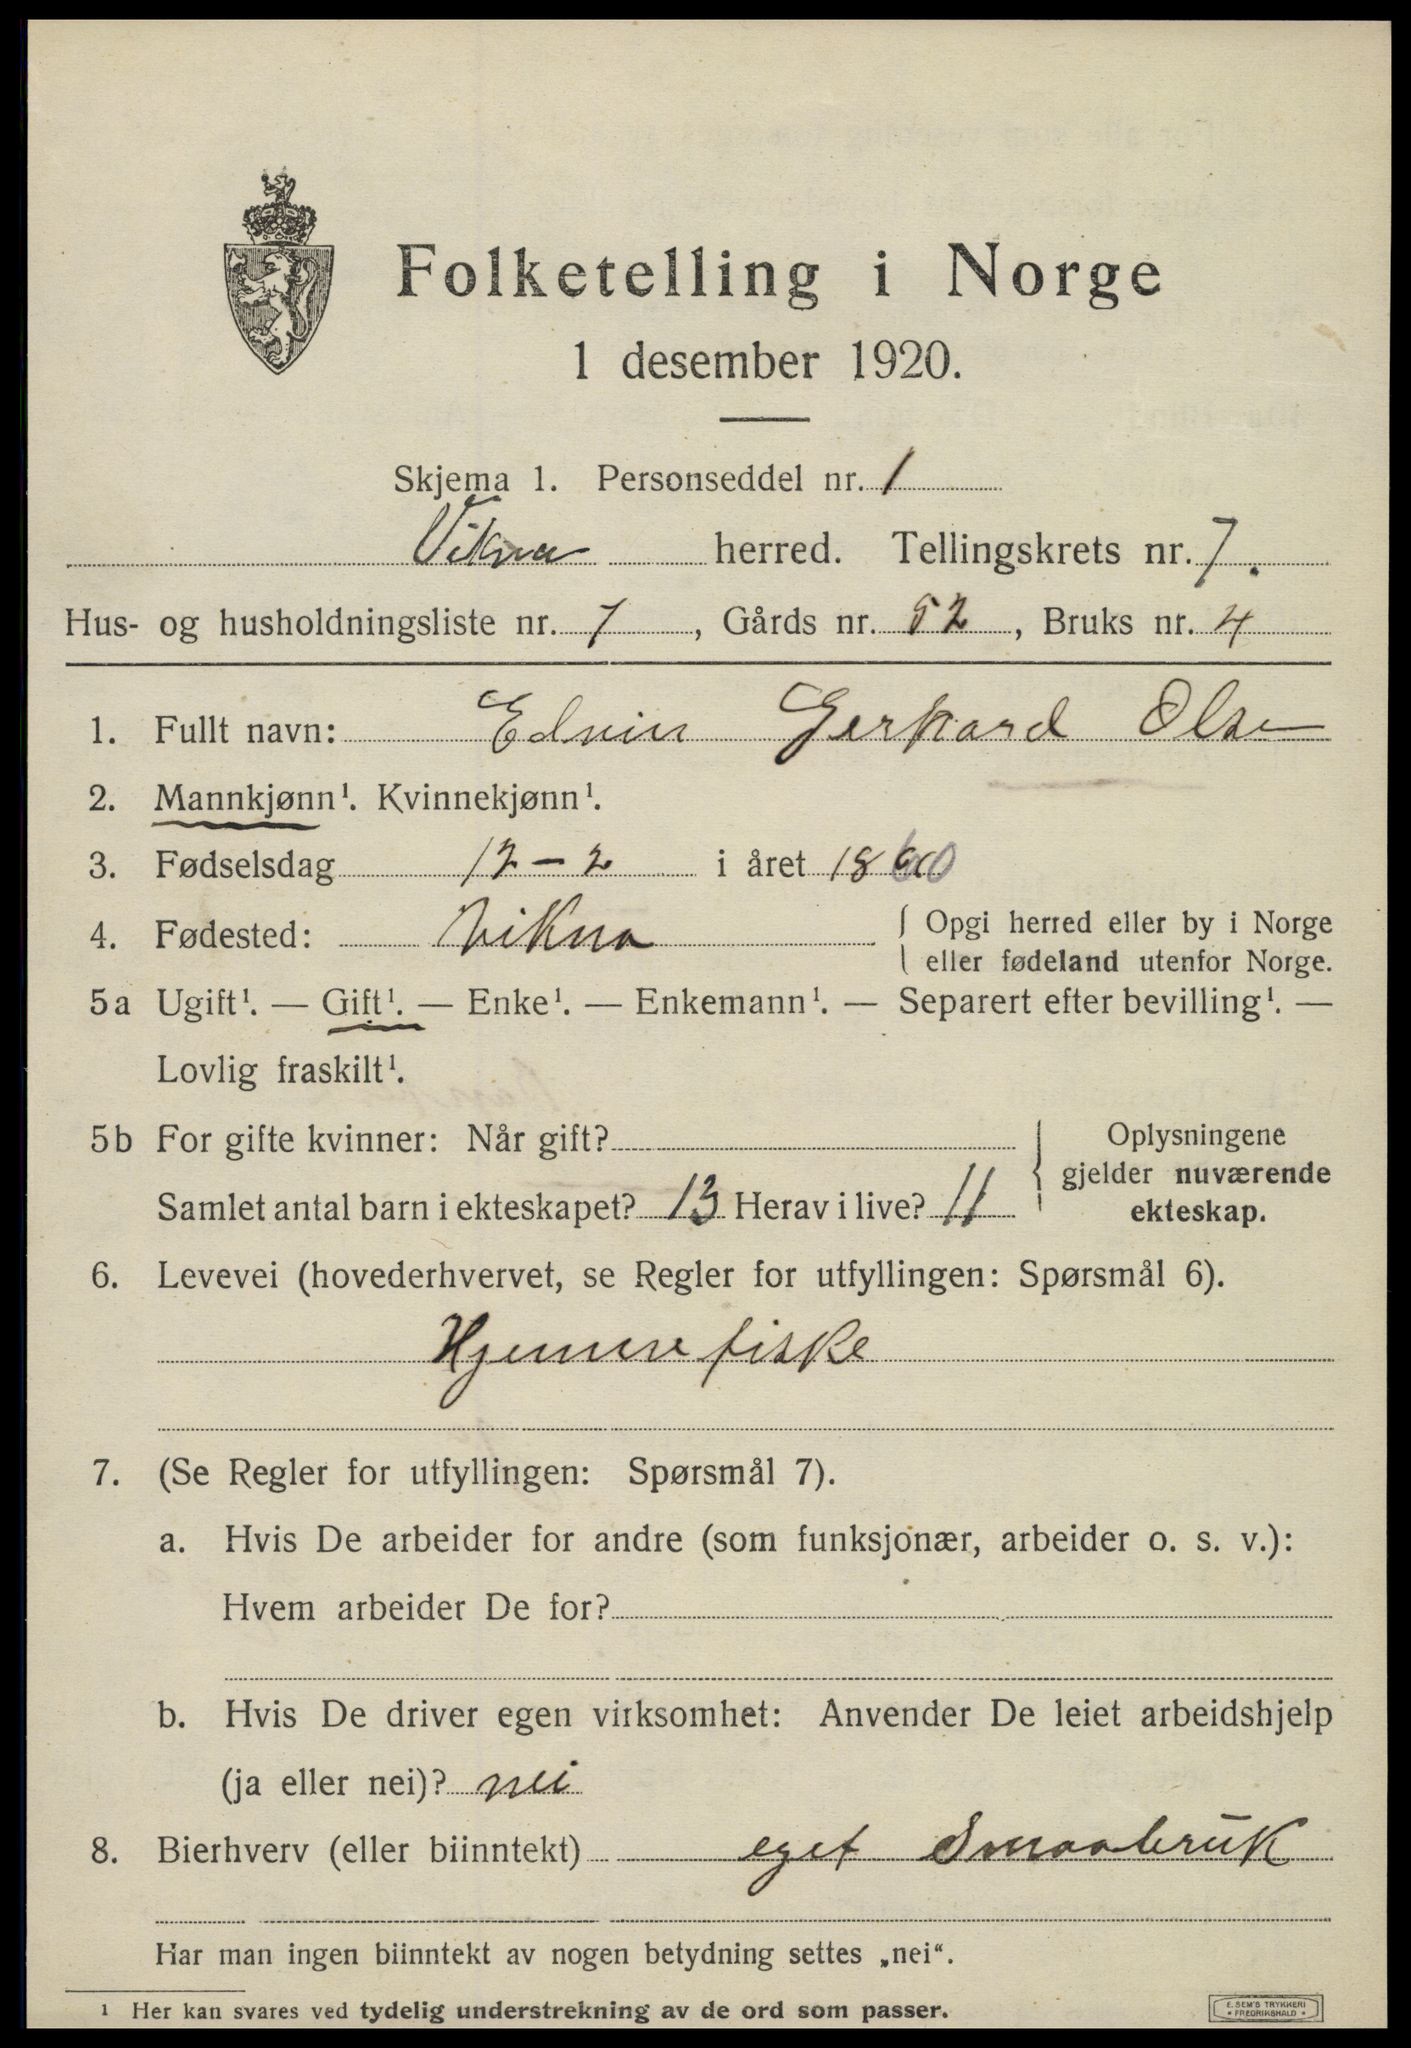 Folketelling i Norge
1 desember 1920.
Skjema 1. Personseddel nr. 1
Vikna herred. Tellingskrets nr. 7.
Hus- og husholdningsliste nr. 7, Gårds nr. 52, Bruks nr. 4
1. Fullt navn: Edvin Gerhard Olsen
2. Mannkjønn¹. Kvinnekjønn¹.
3. Fødselsdag 12-2 i året 1860
4. Fødested: Vikna { Opgi herred eller by i Norge
eller fødeland utenfor Norge.
5a Ugift¹. — Gift¹. — Enke¹. — Enkemann¹. — Separert efter bevilling¹. —
Lovlig fraskilt¹.
5b For gifte kvinner: Når gift? { Oplysningene
gjelder nuværende
Samlet antal barn i ekteskapet? 13 Herav i live? 11 ekteskap.
6. Levevei (hovederhvervet, se Regler for utfyllingen: Spørsmål 6).
Hjemmefiske
7. (Se Regler for utfyllingen: Spørsmål 7).
a. Hvis De arbeider for andre (som funksjonær, arbeider o. s. v.):
Hvem arbeider De for?
b. Hvis De driver egen virksomhet: Anvender De leiet arbeidshjelp
(ja eller nei)? nei
8. Bierhverv (eller biinntekt) eget Smaabruk
Har man ingen biinntekt av nogen betydning settes „nei“.
¹ Her kan svares ved tydelig understrekning av de ord som passer.
E. SEM'S TRYKKERI
FREDRIKSHALD